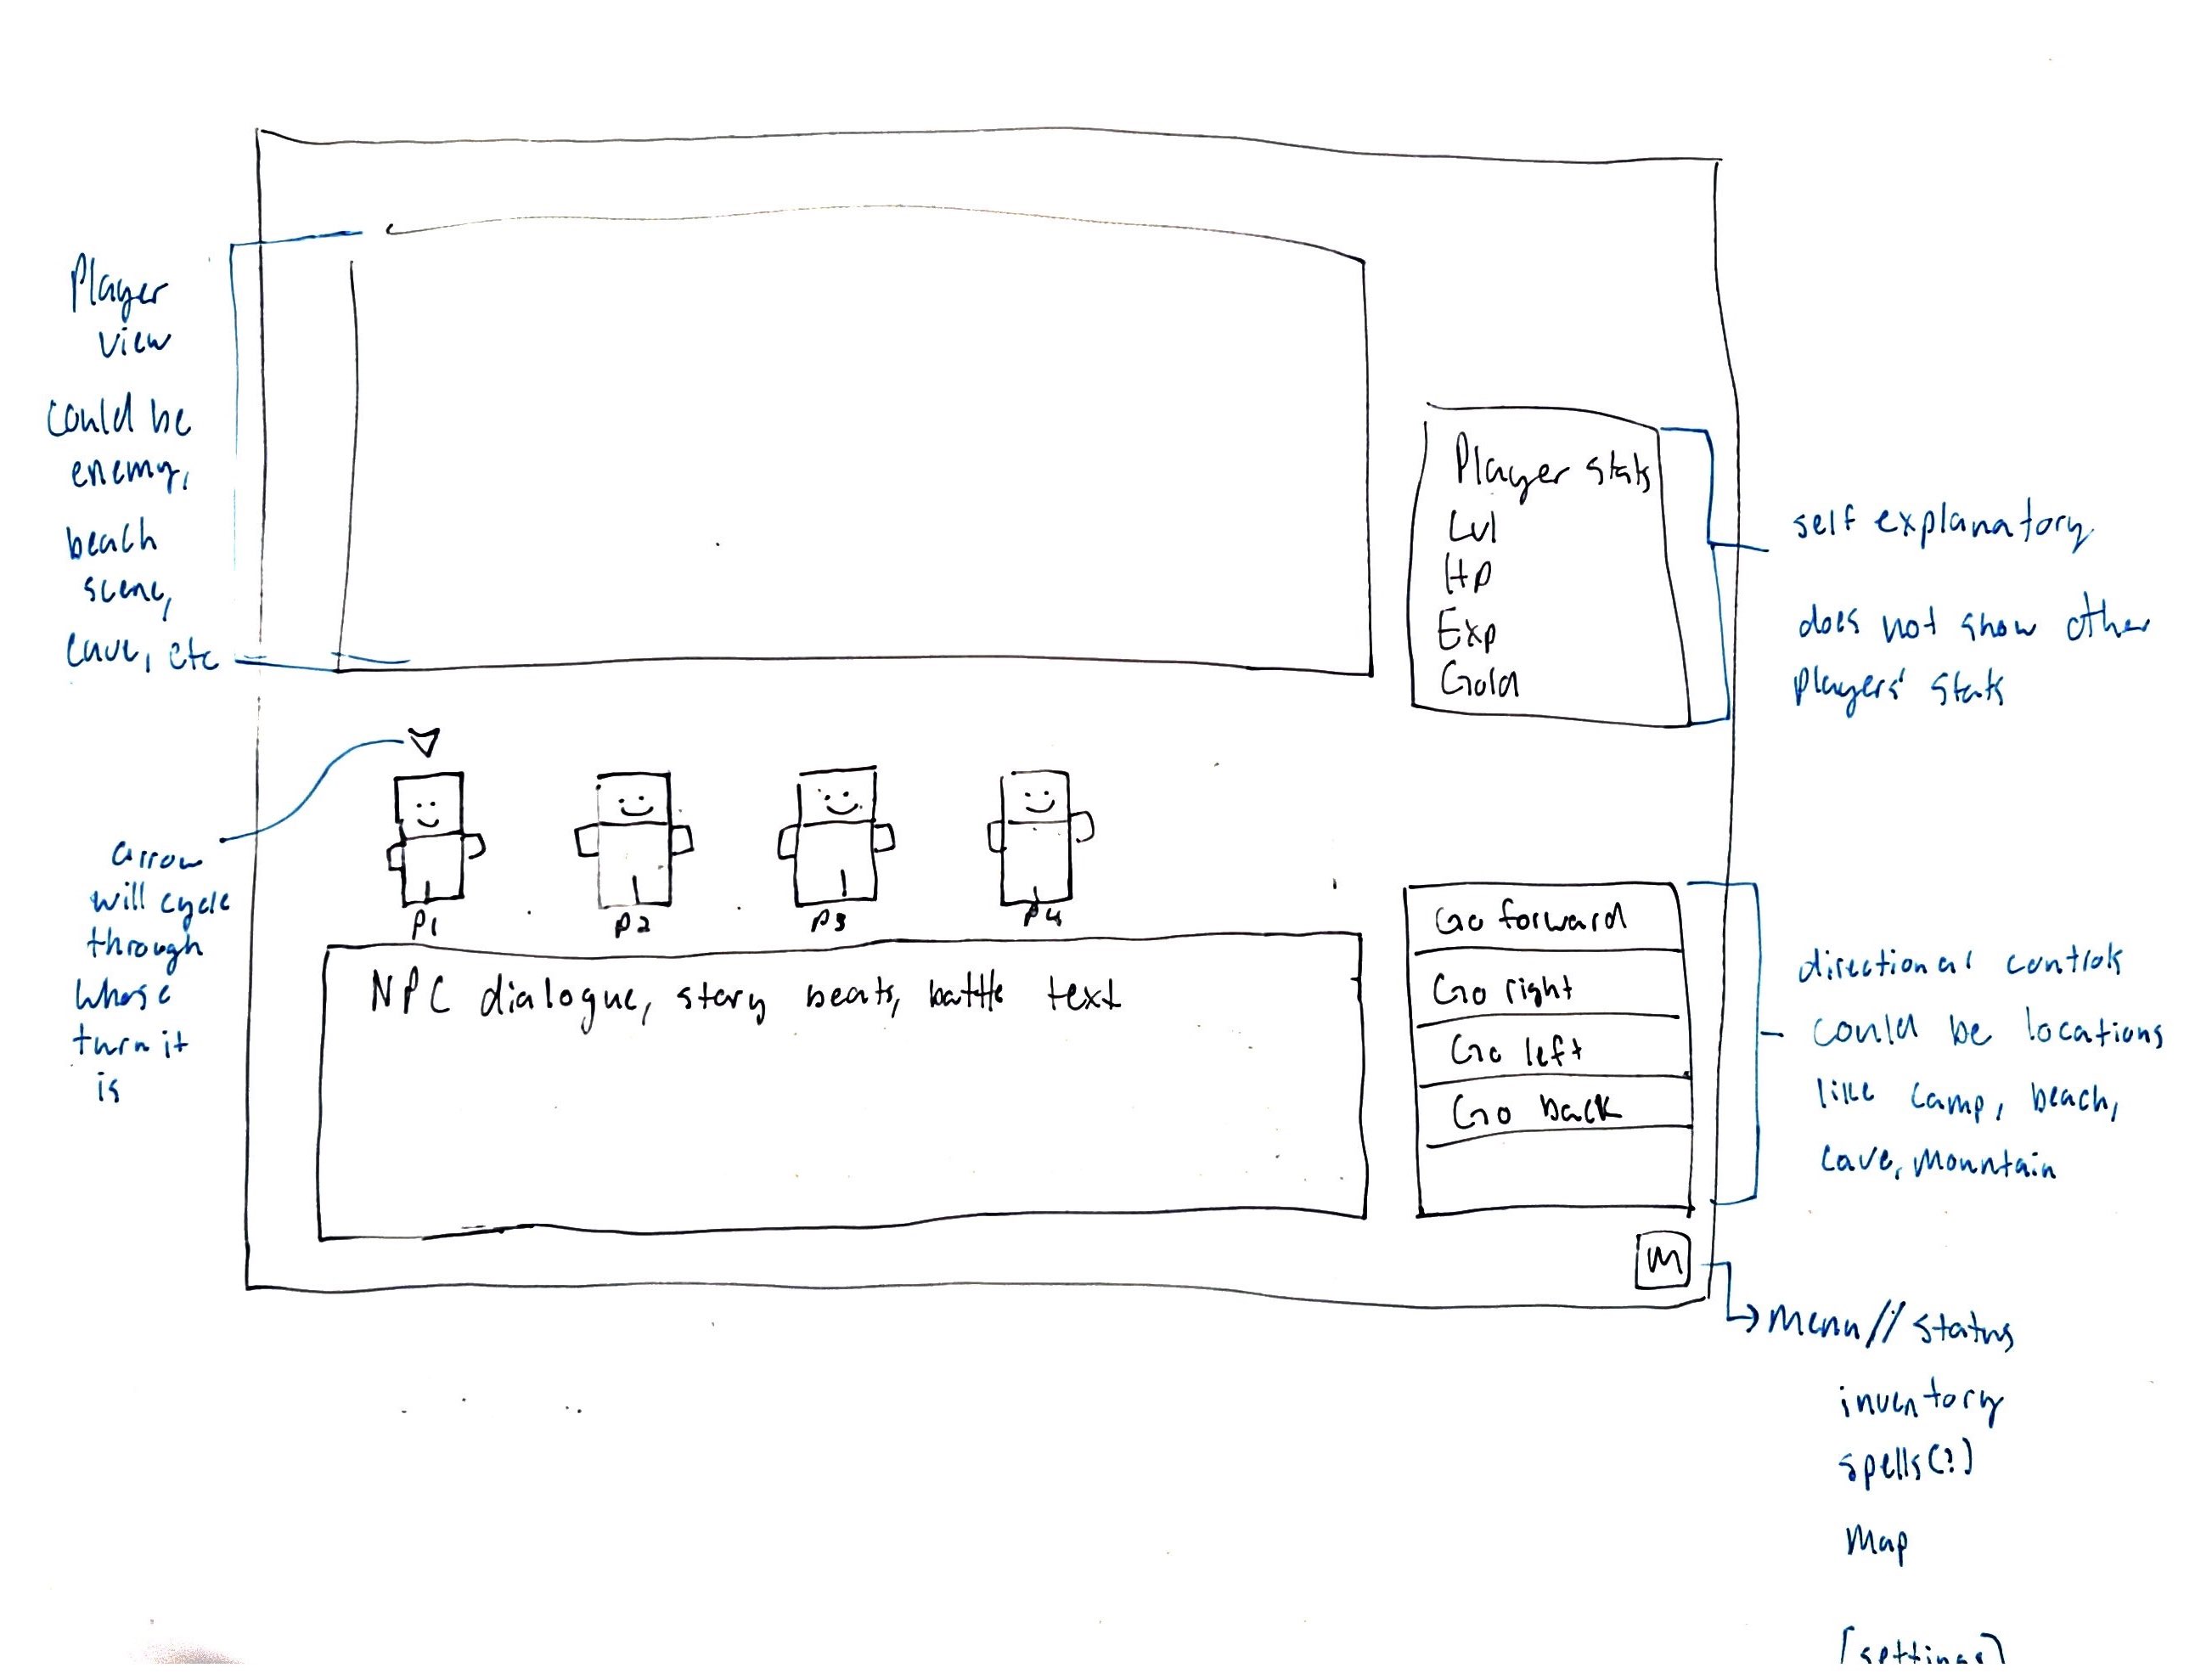 Player
view
could be
enemy,
beach
scene,
cave, etc
Player stats
Lvl
Hp
Exp
Gold
self explanatory
does not show other
players' stats
arrow
will cycle
through
whose
turn it
is
P1
P2
P3
P4
NPC dialogue, story beats, battle text
Go forward
Go right
Go left
Go back
directional controls
could be locations
like camp, beach,
cave, mountain
M
menu // status
inventory
spells(?)
map
[settings]